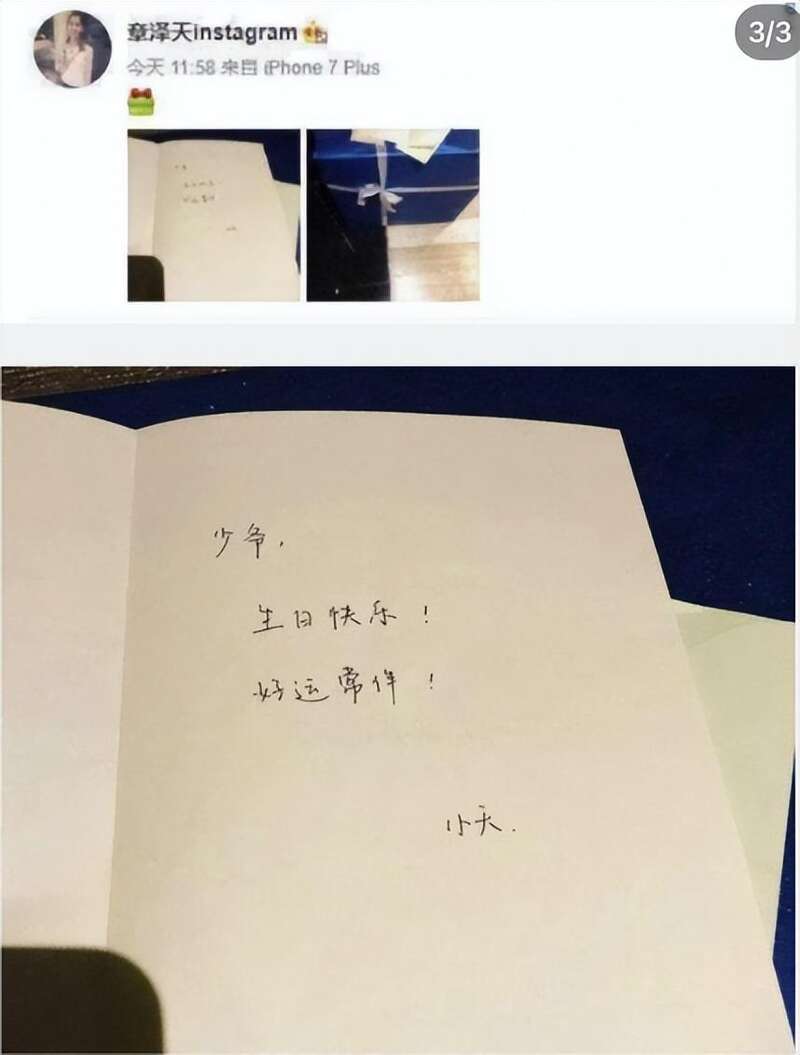 章泽天instagram
3/3
今天 11:58 来自 iPhone 7 Plus
少爷，
生日快乐！
好运常伴！
小天.